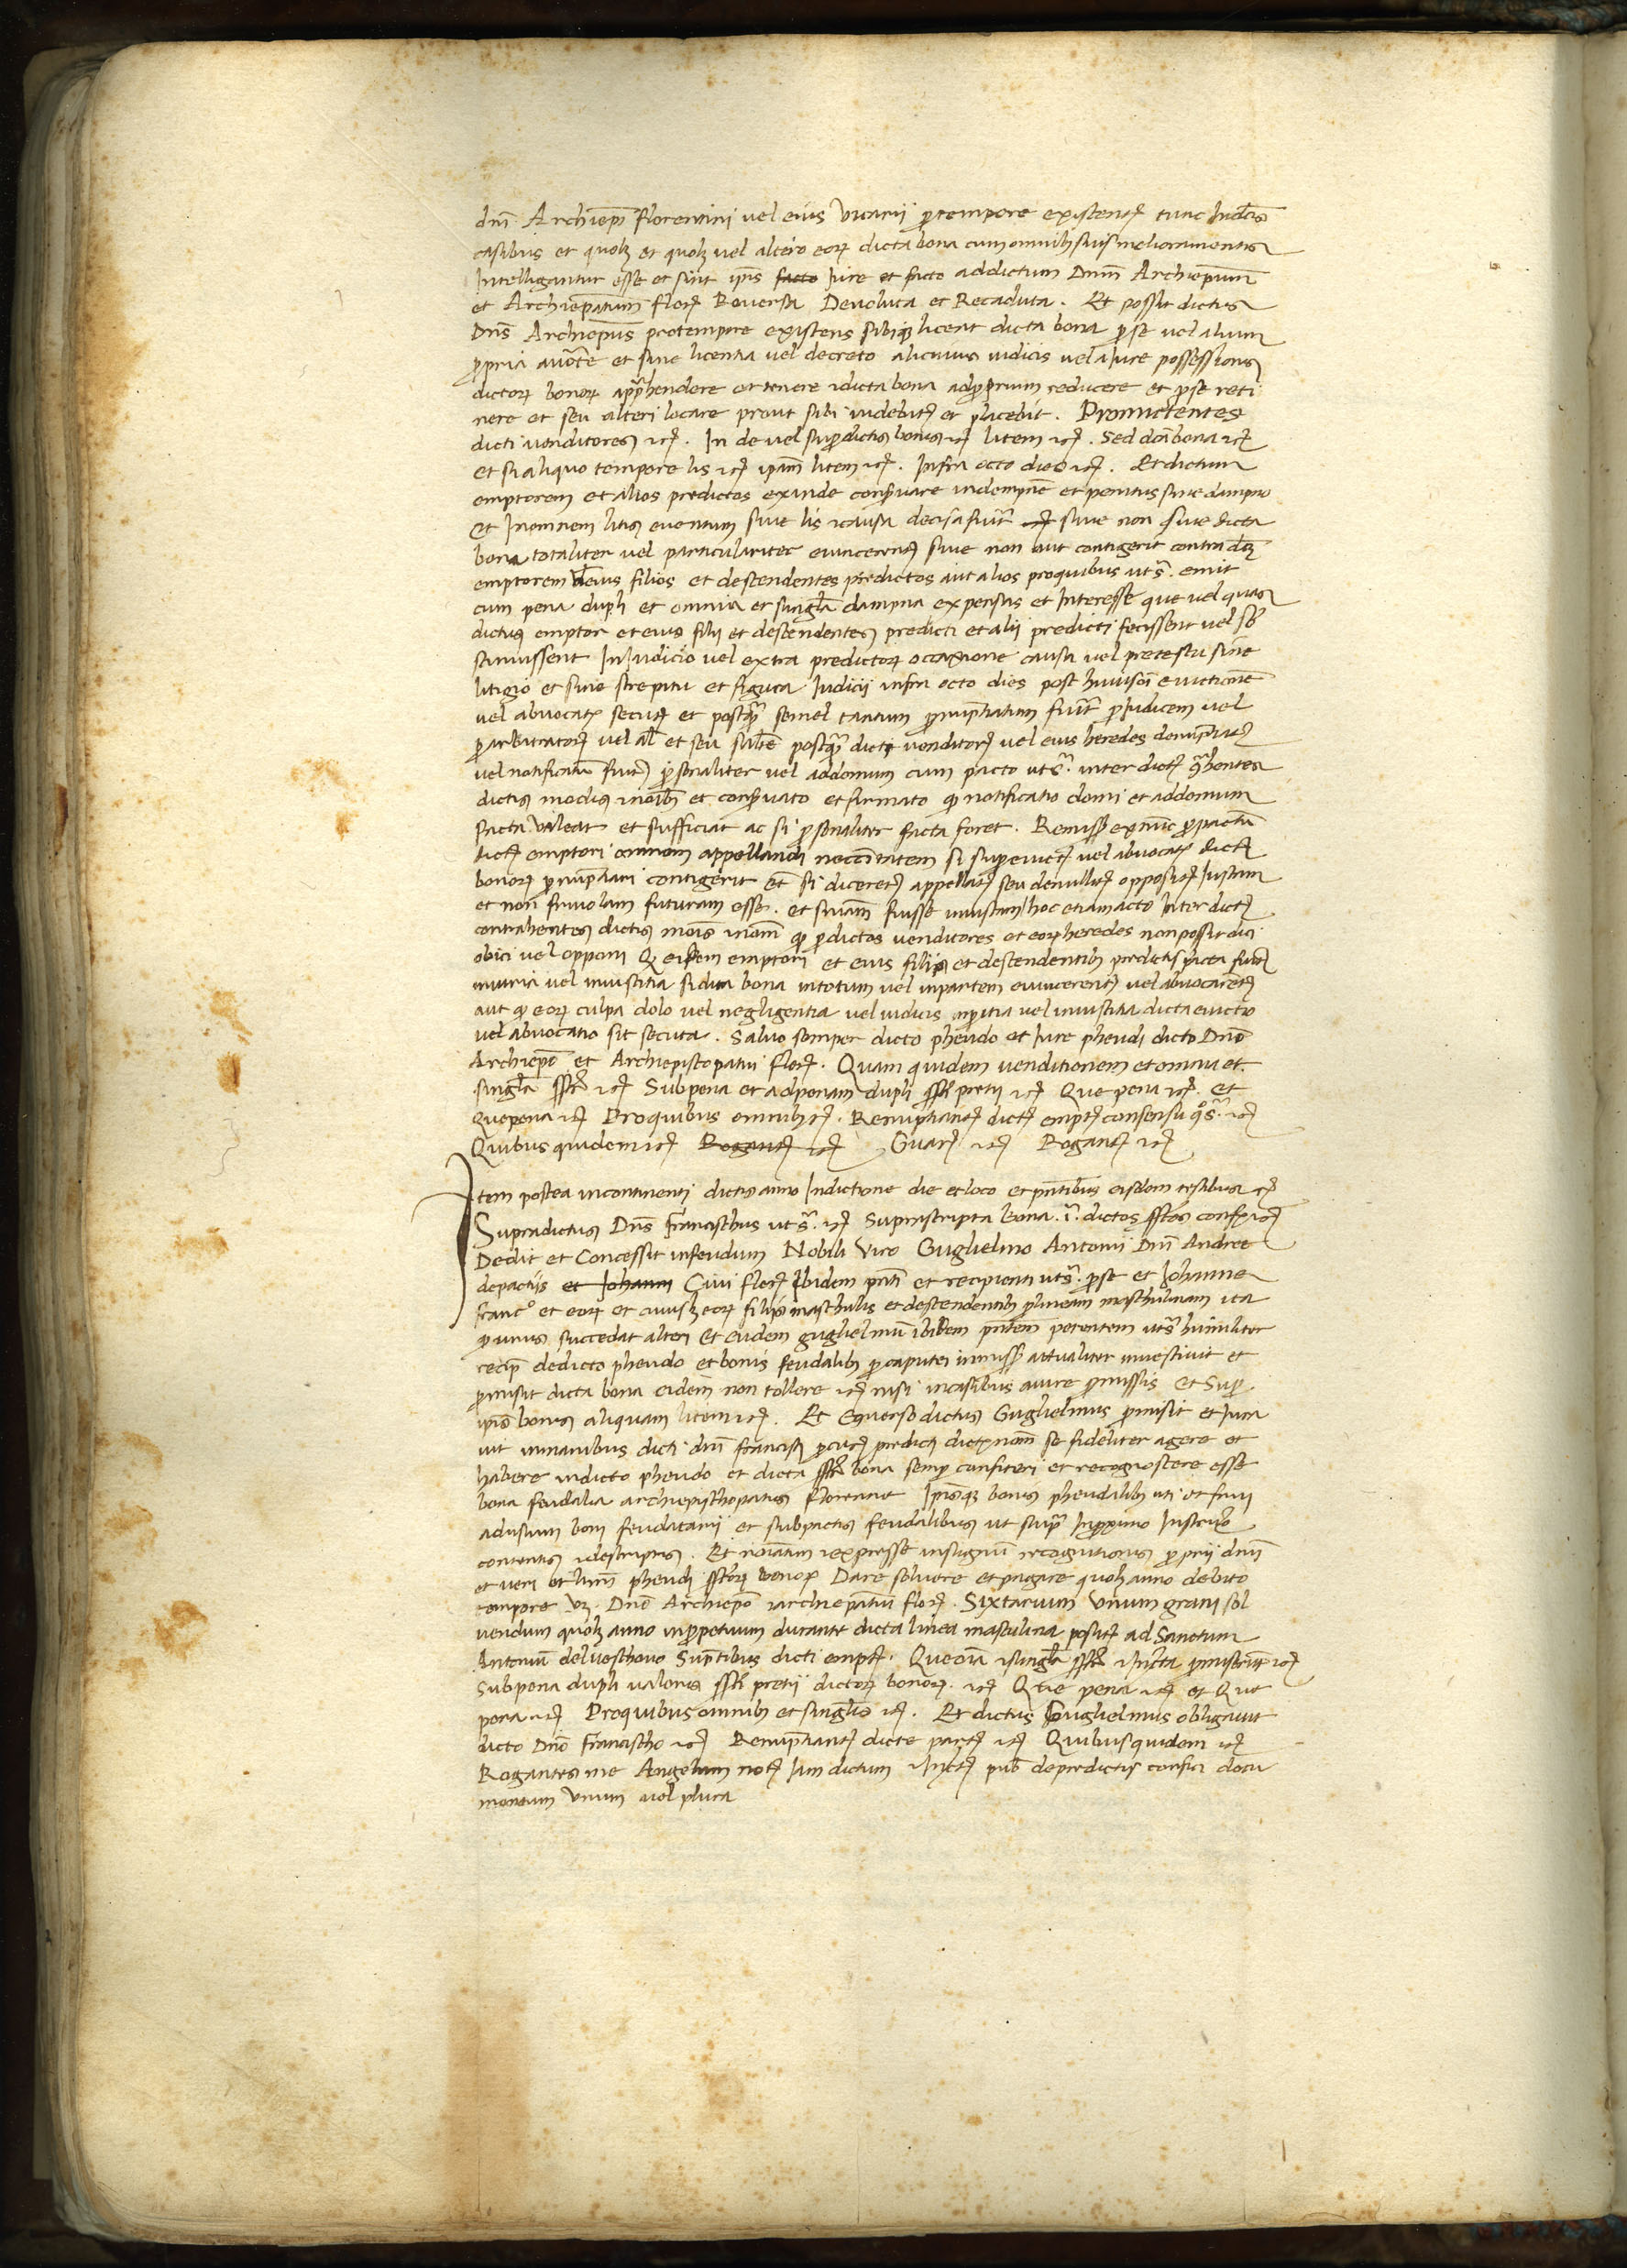 dni Archiepi florentini vel eius vicarii pro tempore existent tunc
casibus et quolz et quolz vel altero eorum dicta bona cum omnibus suis melioramentis
Intelligantur esse et sint ipis facto Iure et facto ad dictum Dnm Archiepum
et Archiepatum flor Reversa Devoluta et Recaduta. Et possit dictus
Dns Archiepus pro tempore existens sibiqz liceat dicta bona per se vel alium
propria aucte et sine licentia vel decreto alicuius iudicis vel a Iure possessionem
dictorum bonorum apprehendere et tenere et dicta bona ad proprium reducere et per se reti
nere et seu alteri locare prout sibi videbit et placebit. Promictentes
dicti venditores etc. In de vel super dictis bonis etc litem etc. Sed dca bona etc
et si aliquo tempore lis etc ipam litem etc. Infra octo dies etc. Et dictum
emptorem et alios predictos exinde conservare indempne et penitus sine dampno
et In omnem litis eventum sive lis et causa decisa fuit etc sive non sive dicta
bona totaliter vel particulariter evincerent sive non aut contigerit contra dcm
emptorem vel eius filios et descendentes predictos aut alios pro quibus ut s. emit
cum pena dupli et omnia et singla dampna expensas et Interesse que vel quas
dictus emptor et eius filii et descendentes predicti et alii predicti fecissent vel sb
stinuissent In Iudicio vel extra predictorum occaxione causa vel pretestu sine
litigio et sine strepitu et figura Iudicii infra octo dies post huiusoi evictione
vel abvocat secut et postqa semel tantum pronuptiatum fuit per Iudicem vel
per arbitrator vel al et seu salte postqa dicti venditor vel eius heredes denuptiat
vel notificatu fuit personaliter vel ad domum cum pacto ut s. inter dict qhentes
dictis modis et noibus et conservato et firmato quod notificatio domi et ad domum
facta valeat et sufficiat ac si personaliter facta foret. Remiss ex nunc per pactu
dict emptori omnem appellandi neccitatem si super evict vel abvocat dict
bonorum pronuptiari contigerit et si diceret appellat seu de nullit opposit Iustam
et non frivolam futuram esse. et sniam fuisse iniustam hoc etiam acto Inter dict
contrahentes dictis mois et noim quod per dictos venditores et eorum heredes non possit dici
obici vel opponi Q eidem emptori et eius filiis et descendentibus predictis facta fuit
iniuria vel iniustitia si dicta bona in totum vel in partem evincerent vel abvocarent
aut quod eorum culpa dolo vel negligentia vel iudicis imperitia vel iniustitia dicta evictio
vel abvocatio sit secuta. Salvo semper dicto pheudo et Iure pheudi dicto Dno
Archiepo et Archiepiscopatui flor. Quam quidem venditionem et omnia et
singla sscta etc Sub pena et ad penam dupli sscti pretii etc Que pena etc et
Que pena etc Pro quibus omnibus etc. Renuptiant dict empt consensu quo s. etc
Quibus quidem etc Rogant etc Guar etc Rogant etc
Item postea incontinenti dictis anno Indictione die et loco et pntibus eisdem testibus etc
Supradictus Dns Francischus ut s. etc suprascripta bona. i. dictos sstos confines etc
Dedit et Concessit in feudum Nobili Viro Guglielmo Antonii Dni Andree
de pactiis et Iohanni Civi flor Ibidem pnti et recipienti ut s. per se et Iohanne
Franco et eorum et cuiuslz eorum filiis maschulis et descendentibus per lineam maschulinam ita
quod unus succedat alteri et eundem guglielmu ibidem pntem petentem ut s. humiliter
recip de dicto pheudo et bonis feudalibus per caputei inmiss actualiter investivit et
promisit dicta bona eidem non tollere etc nisi in casibus a iure promissis et Super
ipis bonis aliquam litem etc. Et Econverso dictus Guglielmus promisit et Iura
vit in manibus dicti dni francisci procur predict dict noie se fideliter agere et
habere in dicto pheudo et dicta sscta bona semper confiteri et recognoscere esse
bona feudalia archiepischopatus florentie Ipisqz bonis pheudalibus uti et frui
ad usum boni feudatarii et sub pactis feudalibus ut supra In proximo Instrumento
contentis et descriptis. Et noiatim et expresse in signu recognitionis proprii dnii
et veri et Iuris pheudi sstorum bonorum Dare solvere et pagare quolz anno debito
tempore vz. Dno Archiepo et archiepatui flor. Sixtarium Unum grani sol
vendum quolz anno in perpetuum durante dicta linea masculina posit ad Sanctum
Antoniu del veschovo Suptibus dicti empt. Que oia et singla sscta et Infrascripta promiserunt etc
Sub pena dupli valoris sscti pretii dictorum bonorum. etc Que pena etc et Que
pena etc Pro quibus omnibus et singulis etc. Et dictus Guglielmus obligavit
dicto Dno Francischo etc Renuptiant dicte part etc Quibus quidem etc
Rogantes me Angelum not Iam dictum et Infrascriptum pub de predictis confici docu
mentum Unum vel plura